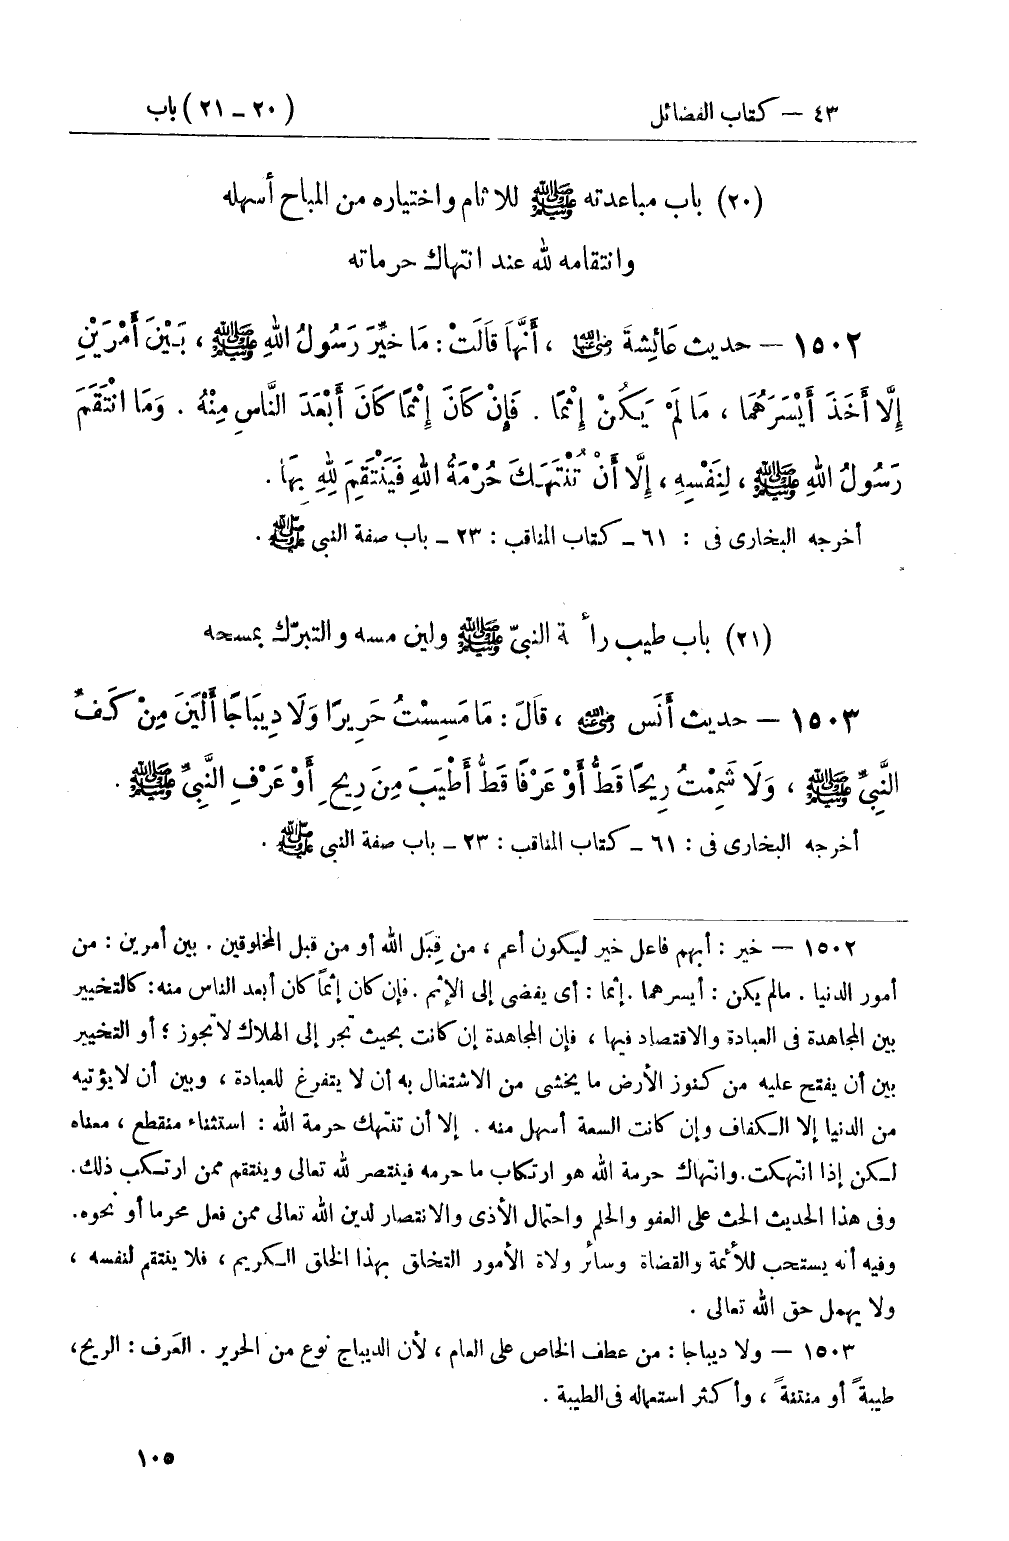 ٤٣ — كتاب الفضائل (٢٠ – ٢١) باب
(٢٠) باب مباعدته ﷺ للآثام واختياره من المباح أسهله
وانتقامه لله عند انتهاك حرماته
١٥٠٢ — حديث عَائِشَةَ رضي الله عنها ، أَنَّهَا قَالَتْ : مَا خُيِّرَ رَسُولُ اللهِ ﷺ ، بَيْنَ أَمْرَيْنِ
إِلَّا أَخَذَ أَيْسَرَهُمَا ، مَا لَمْ يَكُنْ إِثْمًا . فَإِنْ كَانَ إِثْمًا كَانَ أَبْعَدَ النَّاسِ مِنْهُ . وَمَا انْتَقَمَ
رَسُولُ اللهِ ﷺ ، لِنَفْسِهِ ، إِلَّا أَنْ تُنْتَهَكَ حُرْمَةُ اللهِ فَيَنْتَقِمَ لِلهِ بِهَا .
أخرجه البخارى فى : ٦١ – كتاب المناقب : ٢٣ – باب صفة النبى ﷺ .
(٢١) باب طيب رائحة النبىّ ﷺ ولين مسه والتبرّك بمسحه
١٥٠٣ — حديث أَنَسٍ رضي الله عنه ، قَالَ : مَا مَسِسْتُ حَرِيرًا وَلَا دِيبَاجًا أَلْيَنَ مِنْ كَفِّ
النَّبِيِّ ﷺ ، وَلَا شَمِمْتُ رِيحًا قَطُّ أَوْ عَرْفًا قَطُّ أَطْيَبَ مِنَ رِيحِ أَوْ عَرْفِ النَّبِيِّ ﷺ .
أخرجه البخارى فى : ٦١ – كتاب المناقب : ٢٣ – باب صفة النبى ﷺ .
١٥٠٢ — خير : أبهم فاعل خير ليكون أعم ، من قِبَل الله أو من قبل المخلوقين . بين أمرين : من
أمور الدنيا . مالم يكن : أيسرهما . إثما : أى يفضى إلى الإثم . فإن كان إثماً كان أبعد الناس منه : كالتخيير
بين المجاهدة فى العبادة والاقتصاد فيها ، فإن المجاهدة إن كانت بحيث تجر إلى الهلاك لا تجوز ؛ أو التخيير
بين أن يفتح عليه من كنوز الأرض ما يخشى من الاشتغال به أن لا يتفرغ للعبادة ، وبين أن لا يؤتيه
من الدنيا إلا الكفاف وإن كانت السعة أسهل منه . إلا أن تنتهك حرمة الله : استثناء منقطع ، معناه
لكن إذا انتهكت . وانتهاك حرمة الله هو ارتكاب ما حرمه فينتصر لله تعالى وينتقم ممن ارتكب ذلك .
وفى هذا الحديث الحث على العفو والحلم واحتمال الأذى والانتصار لدين الله تعالى ممن فعل محرما أو نحوه .
وفيه أنه يستحب للأئمة والقضاة وسائر ولاة الأمور التخلق بهذا الخلق الكريم ، فلا ينتقم لنفسه ،
ولا يهمل حق الله تعالى .
١٥٠٣ — ولا ديباجا : من عطف الخاص على العام ، لأن الديباج نوع من الحرير . العَرف : الريح ،
طيبةً أو منتنةً ، وأكثر استعماله فى الطيبة .
١٠٥